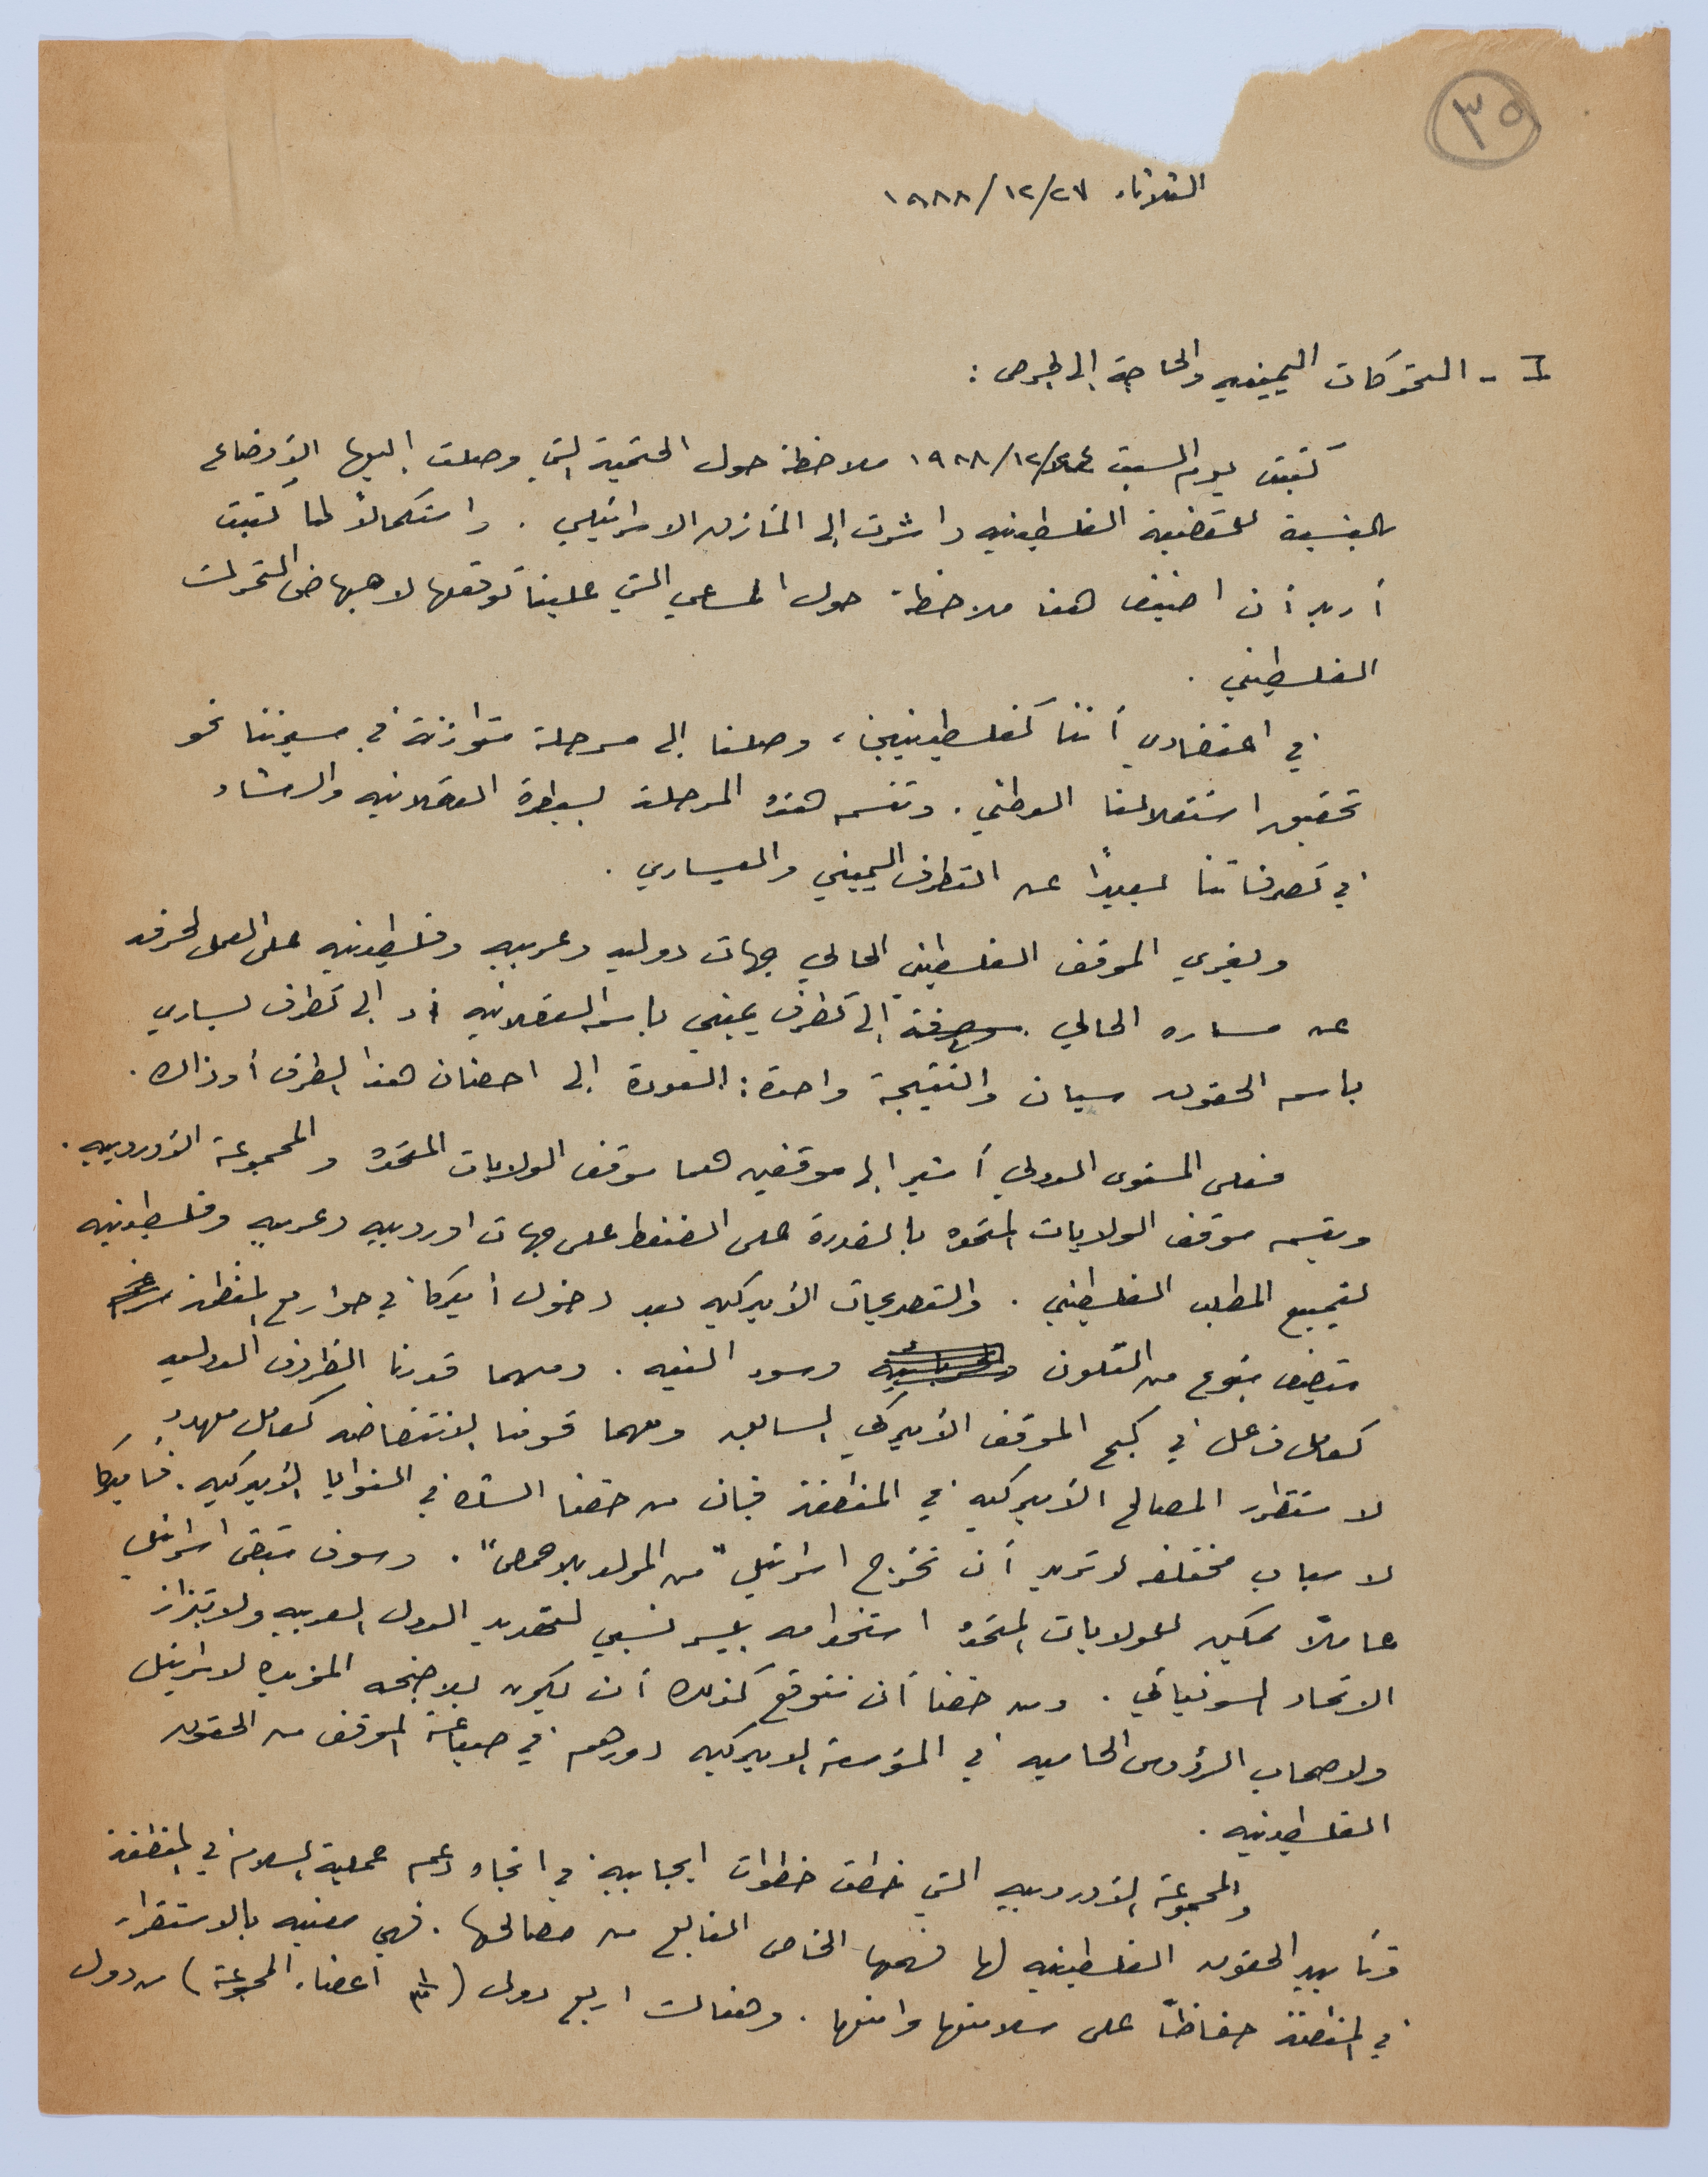 ٣٥
الثلاثاء ١٩٨٨/١٢/٢٧
I - التحركات اليمينيه والحاجة إلى الحرص :
كتبت يوم السبت ١٩٨٨/١٢/٢٤ ملاحظة حول الحتمية التي وصلت إليها الأوضاع
بالنسبة للقضية الفلسطينيه واشرت إلى المأزق الاسرائيلي . واستكمالاً لما كتبت
أريد أن اضيف هنا ملاحظة حول المساعي التي علينا توقعها لاجهاض التحرك
الفلسطيني .
في اعتقادي أننا كفلسطينيين ، وصلنا إلى مرحلة متوازنة في مسيرتنا نحو
تحقيق استقلالنا الوطني . وتتسم هذه المرحلة بسيطرة العقلانيه والرشاد
في تصرفاتنا بعيداً عن التطرف اليميني واليساري .
ويغري الموقف الفلسطيني الحالي جهات دوليه وعربيه وفلسطينيه على العمل لحرفه
عن مساره الحالي . إلى تطرف يميني باسم العقلانيه أو إلى تطرف يساري
باسم الحقوق سيان والنتيجة واحدة : العودة إلى احضان هذا الطرف أو ذاك .
فعلى المستوى الدولي أشير إلى موقفين هما موقف الولايات المتحده والمجموعة الأوروبيه .
ويتسم موقف الولايات المتحده بالقدرة على الضغط على جهات اوروبيه وعربيه وفلسطينيه
لتمييع المطلب الفلسطيني . والتصريحات الأميركيه بعد دخول أميركا في حوار مع المنظمة
تتصف بنوع من التلون وسوء النيه . ومهما قدرنا الظروف الدوليه
كعامل فاعل في كبح الموقف الأميركي السالب ومهما قومنا الانتفاضه كعامل مهدد
لاستقرار المصالح الأميركيه في المنطقة فإن من حقنا الشك في النوايا الأميركيه . فأميركا
لاسباب مختلفه لا تريد أن تخرج اسرائيل "من المولد بلا حمص" . وسوف تبقى اسرائيل
عاملاً يمكن للولايات المتحده استخدامه بيسر نسبي لتهديد الدول العربيه ولابتزاز
الاتحاد السوفياتي . ومن حقنا أن نتوقع كذلك أن يكون للاجنحه المؤيده لاسرائيل
ولاصحاب الرؤوس الحاميه في المؤسسة الاميركيه دورهم في صياغة الموقف من الحقوق
الفلسطينيه .
والمجموعة الأوروبيه التي خطت خطوات ايجابية في اتجاه دعم عملية السلام في المنطقة
وتأييد الحقوق الفلسطينيه لها فهمها الخاص النابع من مصالحها . فهي معنيه بالاستقرار
في المنطقة حفاظاً على سلامتها وامنها . وهناك اربع دول (١/٣ أعضاء المجموعة) من دول